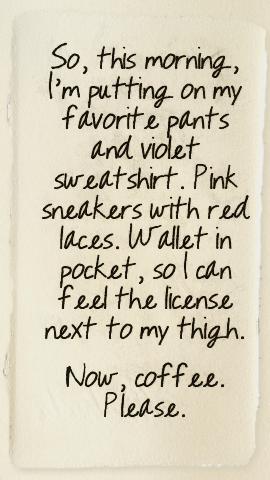 So, this morning,
I'm putting on my
favorite pants
and violet
sweatshirt. Pink
sneakers with red
laces. Wallet in
pocket, so I can
feel the license
next to my thigh.
Now, coffee.
Please.